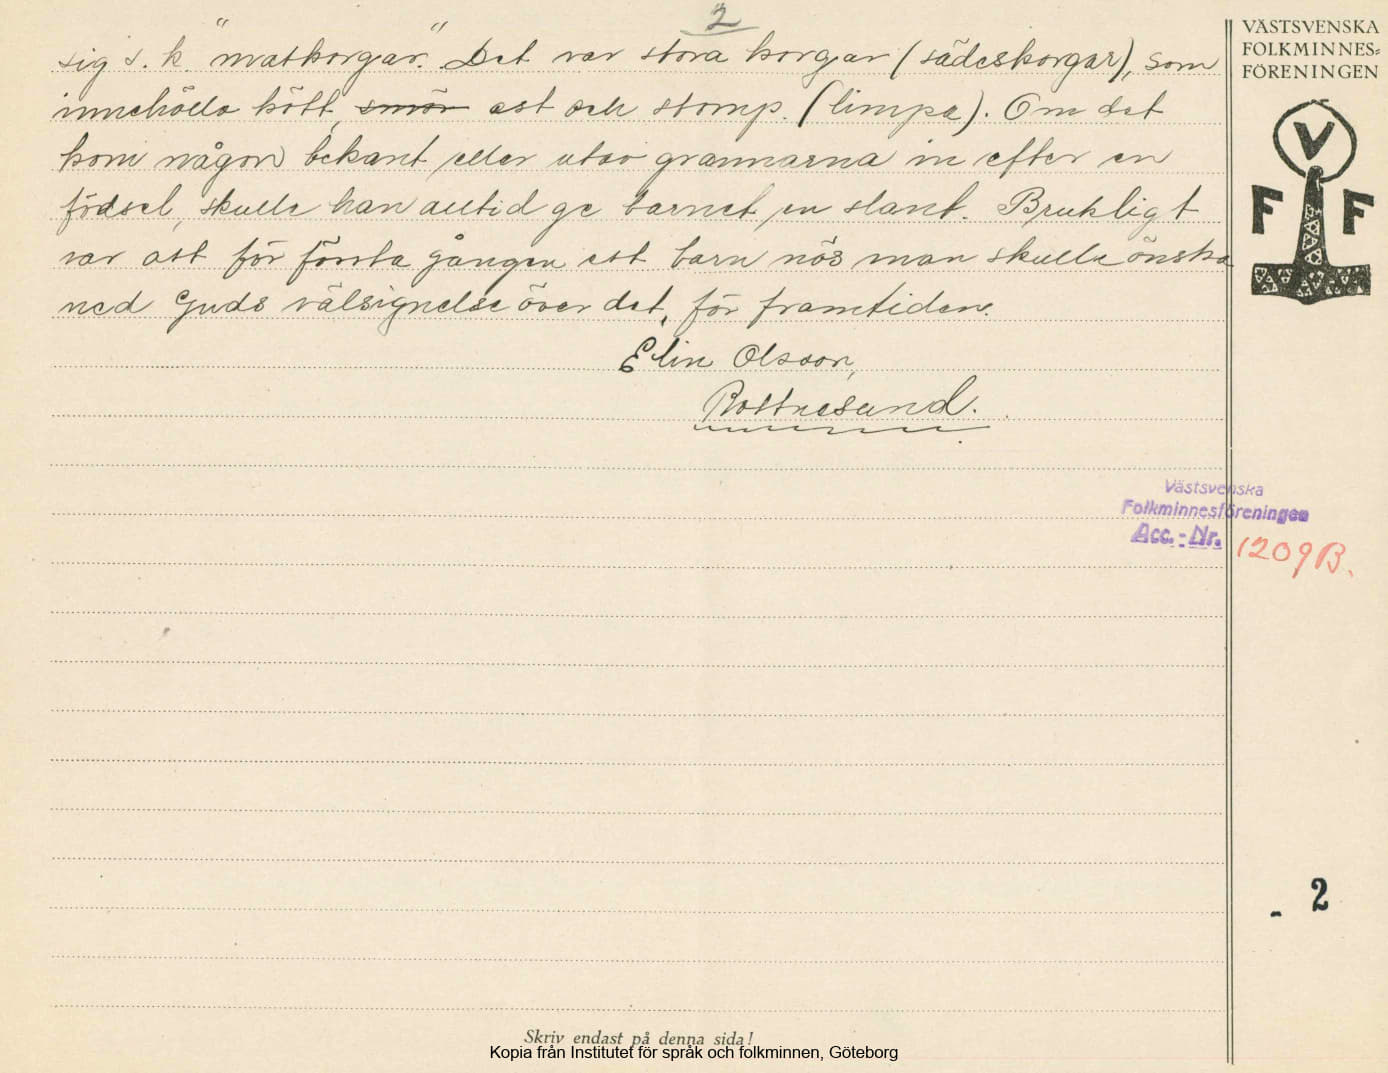 2
sig s. k. "matkorgar". Det var stora korgar (sädeskorgar), som
innehöllo kött, smör ost och stomp. (limpa). Om det
kom någon bekant eller utav grannarna in efter en
födsel, skulle han alltid ge barnet en slant. Brukligt
var att för första gången ett barn nös man skulle önska
ned Guds välsignelse över det, för framtiden.
Elin Olsson,
Rottnesund.
VÄSTSVENSKA
FOLKMINNES=
FÖRENINGEN
V
F F
Västsvenska
Folkminnesföreningen
Acc. - Nr. 1209B.
- 2
Skriv endast på denna sida!
Kopia från Institutet för språk och folkminnen, Göteborg